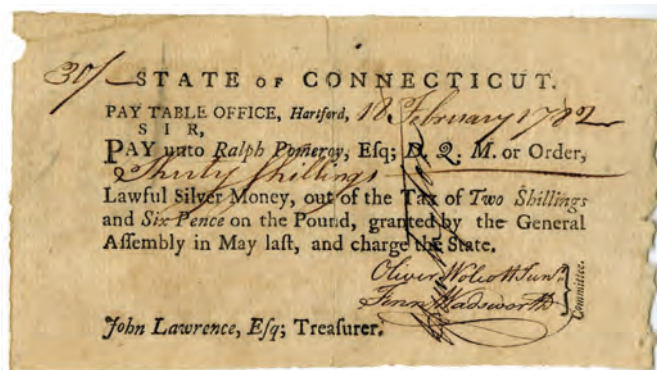 30/ STATE OF CONNECTICUT.
PAY TABLE OFFICE, Hartford, 18 February 1782
S I R,
PAY unto Ralph Pomeroy, Eſq; D. Q. M. or Order,
Thirty ſhillings
Lawful Silver Money, out of the Tax of Two Shillings
and Six Pence on the Pound, granted by the General
Aſſembly in May laſt, and charge the State.
Oliver Wolcott Junr.
Fenn Wadsworth
Committee.
John Lawrence, Eſq; Treaſurer.